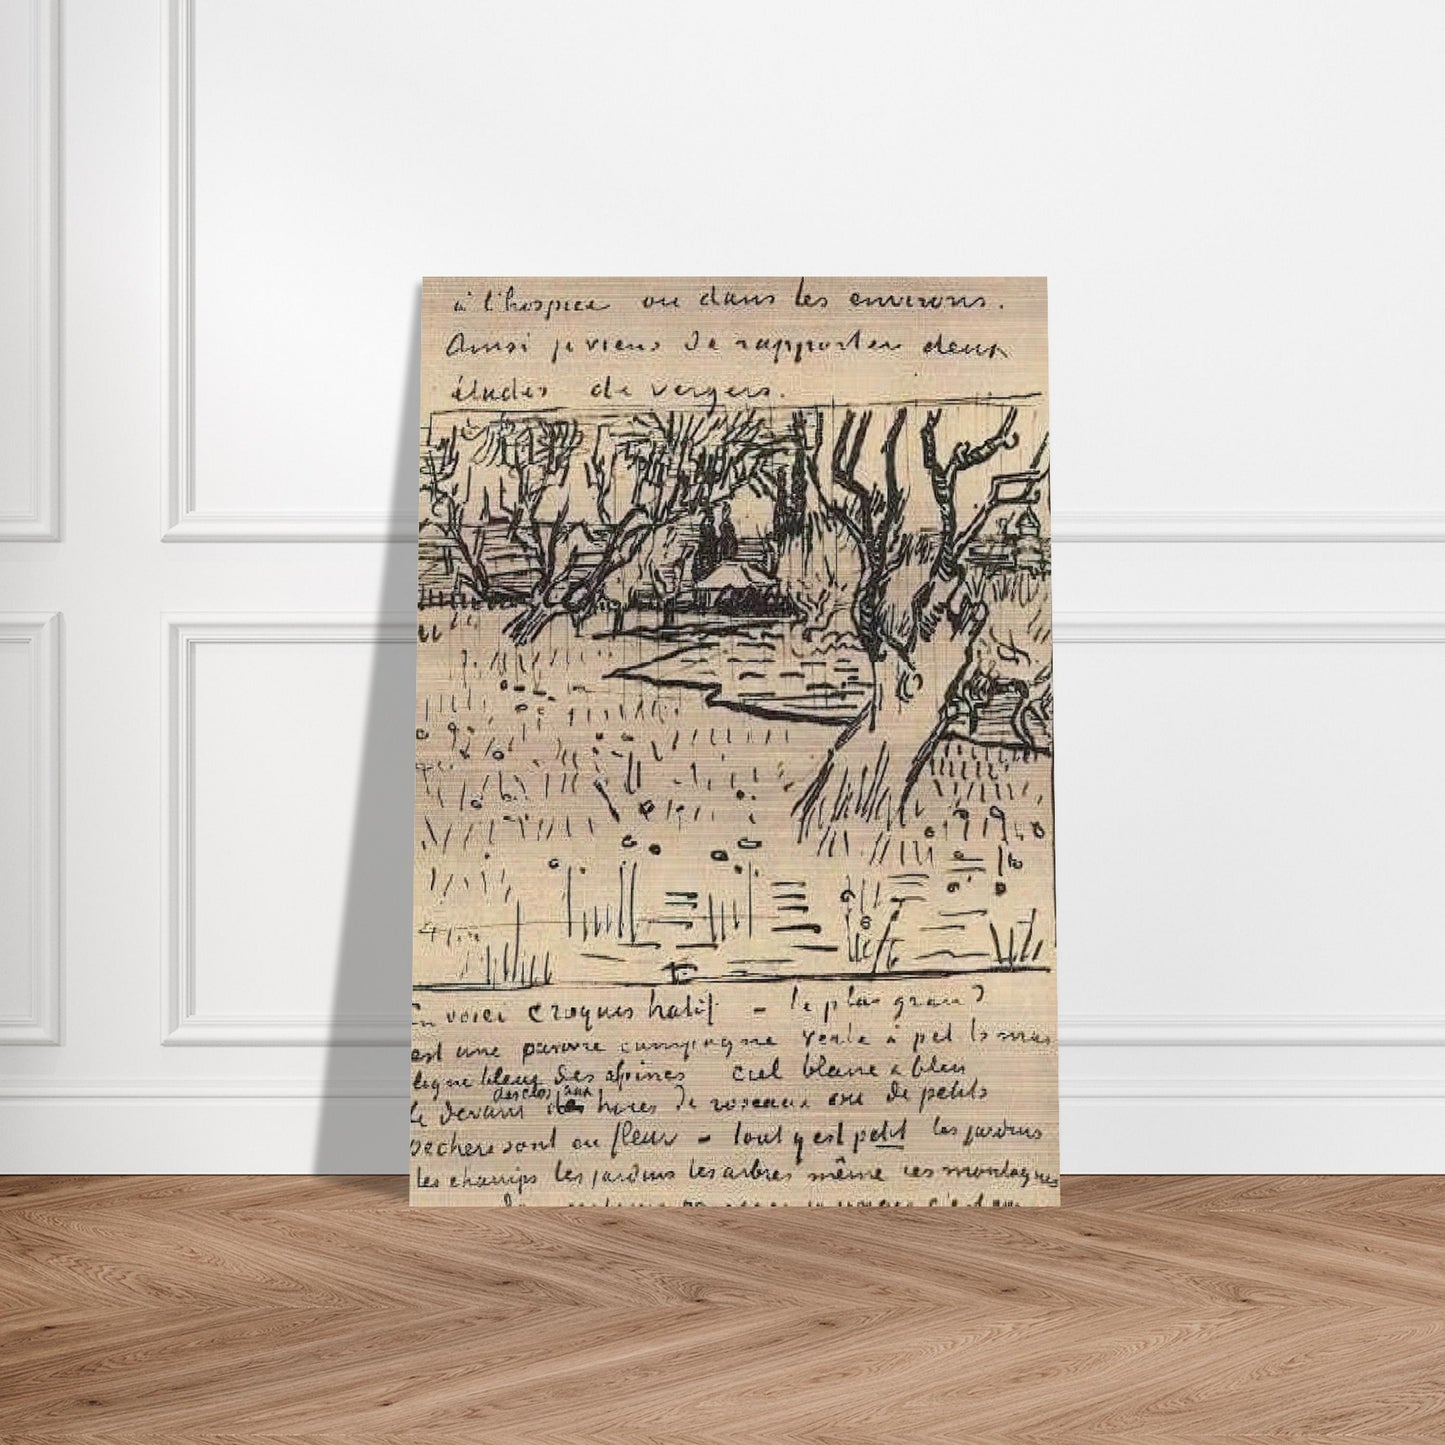 à l'hospice ou dans les environs.
Ainsi je viens de rapporter deux
études de vergers.
En voici croquis hatif – le plus grand
est une pauvre campagne verte à pet ls mas
ligne bleue des alpines ciel blanc & bleu
Le devant des clos aux haies de roseaux ou de petits
pechers sont en fleur – tout y est petit les jardins
les champs les jardins les arbres même ces montagnes